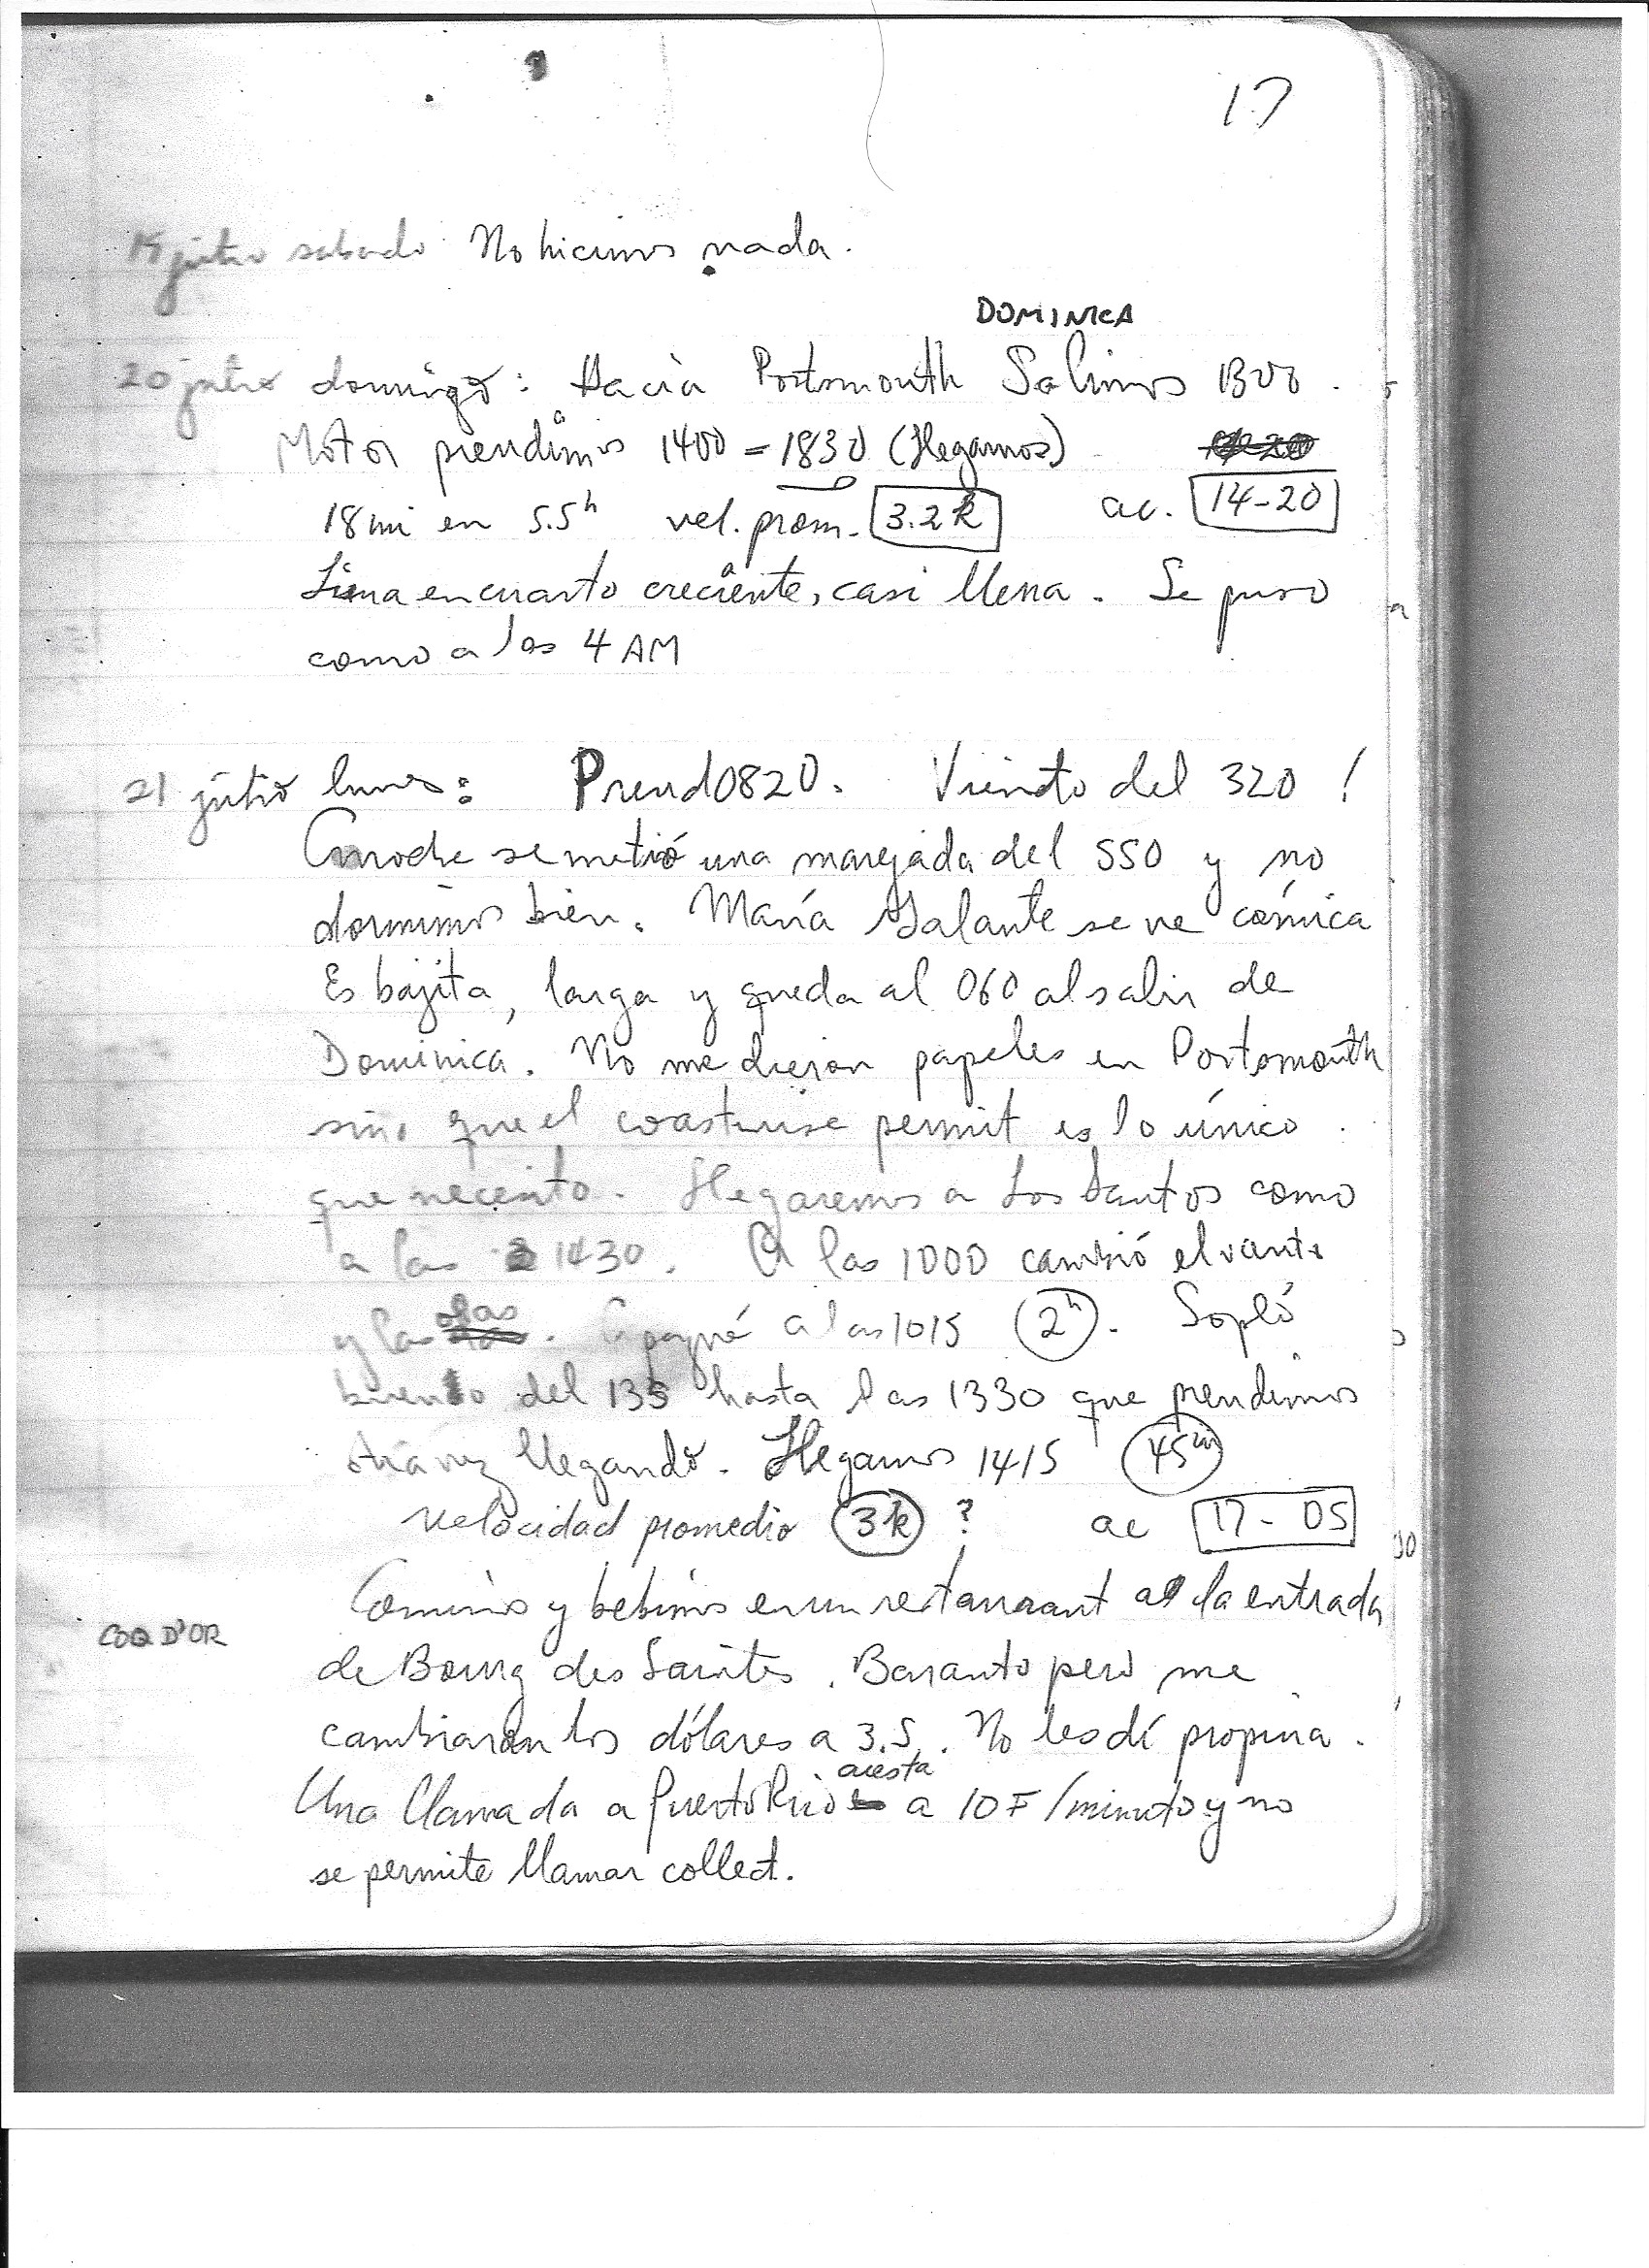 17
19 julio sabado No hicimos nada.
DOMINICA
20 julio domingo: Hacia Portsmouth Salimos 1300.
Motor prendimos 1400 = 1830 (llegamos)
18 mi en 5.5h vel. prom. 3.2k ac. 14-20
Luna en cuarto creciente, casi llena. Se puso
como a las 4 AM
21 julio lunes: Prend 0820. Viento del 320!
Anoche se metió una marejada del SSO y no
dormimos bien. María Galante se ve cómica
Es bajita, larga y queda al 060 al salir de
Dominica. No me dieron papeles en Portsmouth
sino que el coastwise permit es lo único
que necesito. Llegaremos a Los Santos como
a las 1430. A las 1000 cambió el viento
y las olas. Apagué a las 1015 2h. Sopló
bueno del 135 hasta las 1330 que prendimos
otra vez llegando. Llegamos 1415 45m
Velocidad promedio 3k ? ac 17-05
Comimos y bebimos en un restaurant a la entrada
COQ D'OR
de Bourg des Saintes. Baranto pero me
cambiaron los dólares a 3.5. No les dí propina.
Una llamada a Puerto Rico cuesta a 10F/minuto y no
se permite llamar collect.